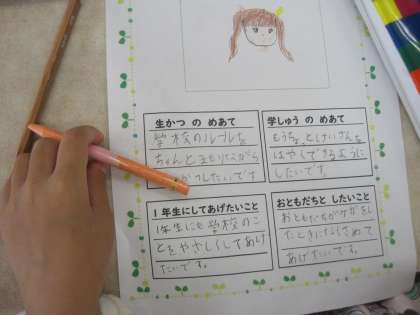 生かつ の めあて
学校のルールを
ちゃんとまもりながら
かつしたいです
学しゅう の めあて
もうちょとけいさんを
はやくできるように
したいです。
1年生にしてあげたいこと
1年生にも学校のこ
とをやさしくしてあげ
たいです。
おともだちと したいこと
おともだちがケガをし
たときになぐさめて
あげたいです。